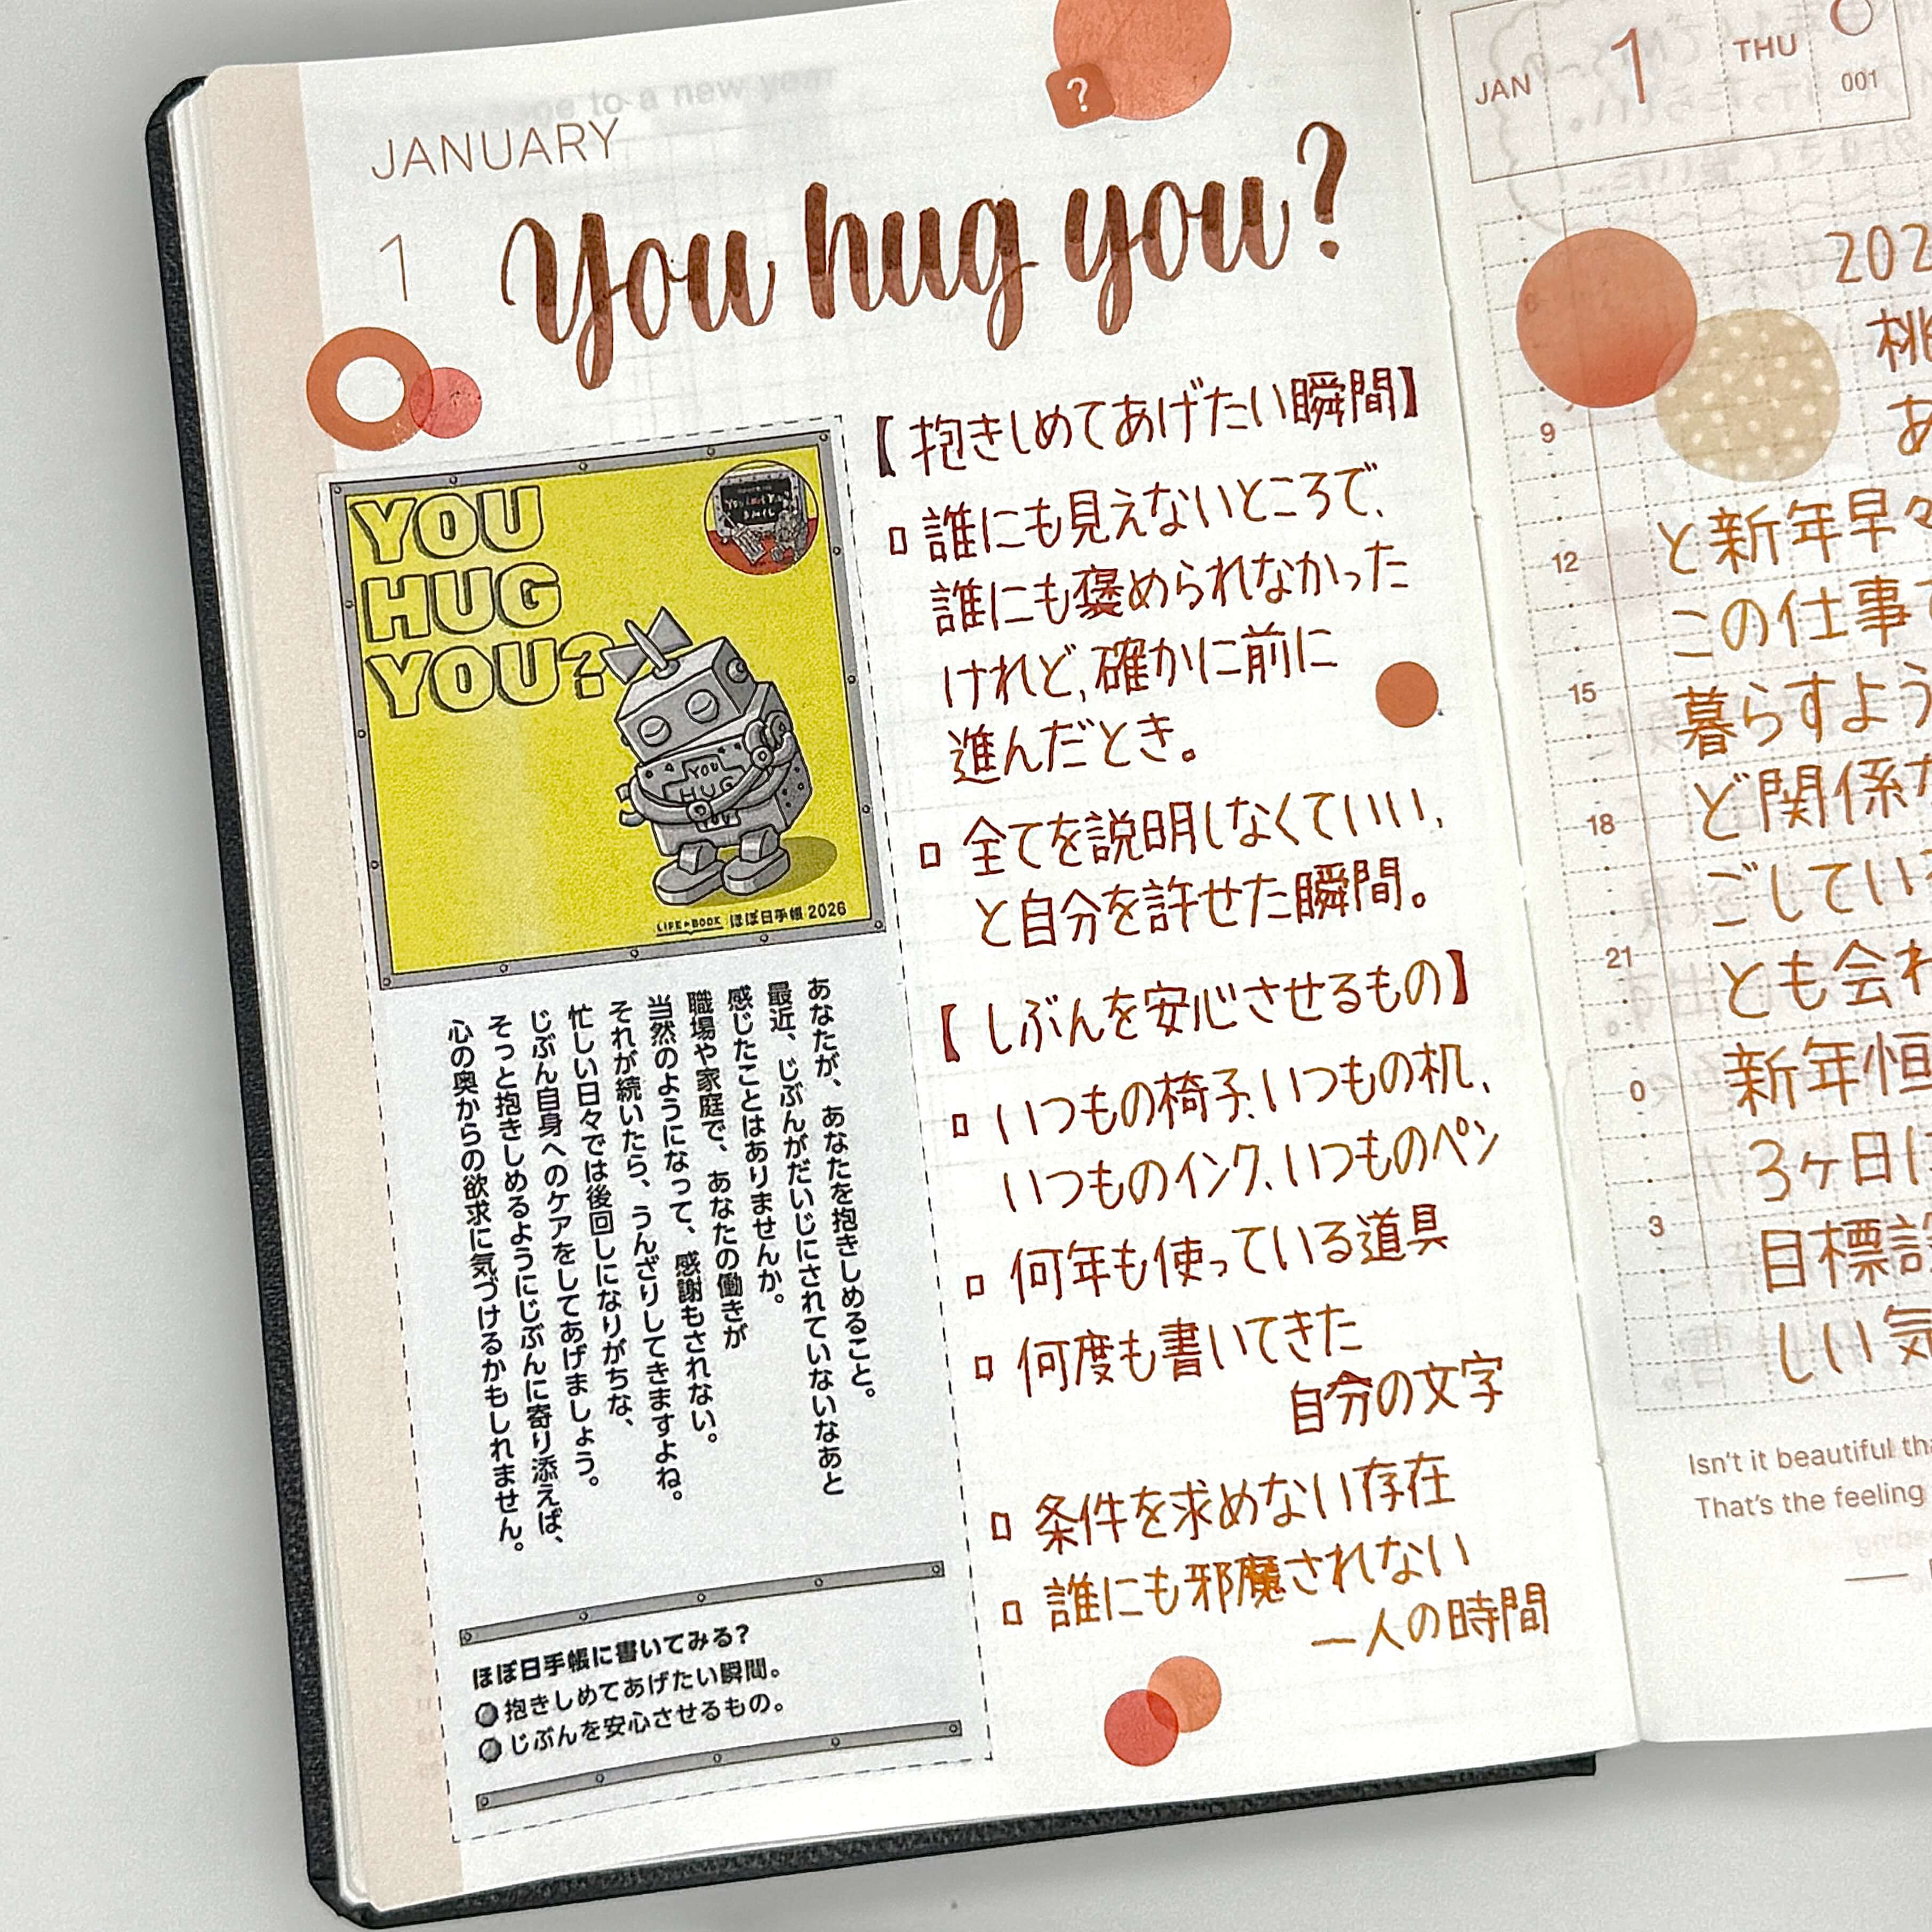 JANUARY
1
You hug you?
?
YOU
HUG
YOU?
YOU
HUG
LIFEのBOOK ほぼ日手帳 2026
あなたが、あなたを抱きしめること。
最近、じぶんがだいじにされていないなあと
感じたことはありませんか。
職場や家庭で、あなたの働きが
当然のようになって、感謝もされない。
それが続いたら、うんざりしてきますよね。
忙しい日々では後回しになりがちな、
じぶん自身へのケアをしてあげましょう。
そっと抱きしめるようにじぶんに寄り添えば、
心の奥からの欲求に気づけるかもしれません。
ほぼ日手帳に書いてみる?
抱きしめてあげたい瞬間。
じぶんを安心させるもの。
【抱きしめてあげたい瞬間】
誰にも見えないところで、
誰にも褒められなかった
けれど、確かに前に
進んだとき。
全てを説明しなくていい、
と自分を許せた瞬間。
【じぶんを安心させるもの】
いつもの椅子、いつもの机、
いつものインク、いつものペン
何年も使っている道具
何度も書いてきた
自分の文字
条件を求めない存在
誰にも邪魔されない
一人の時間
JAN 1 THU 001
202
桃
あ
と新年早々
この仕事
暮らすよう
ど関係
ごしてい
とも会
新年恒
3ヶ日
目標設
しい気
9
12
15
18
21
0
3
Isn't it beautiful
That's the feeling